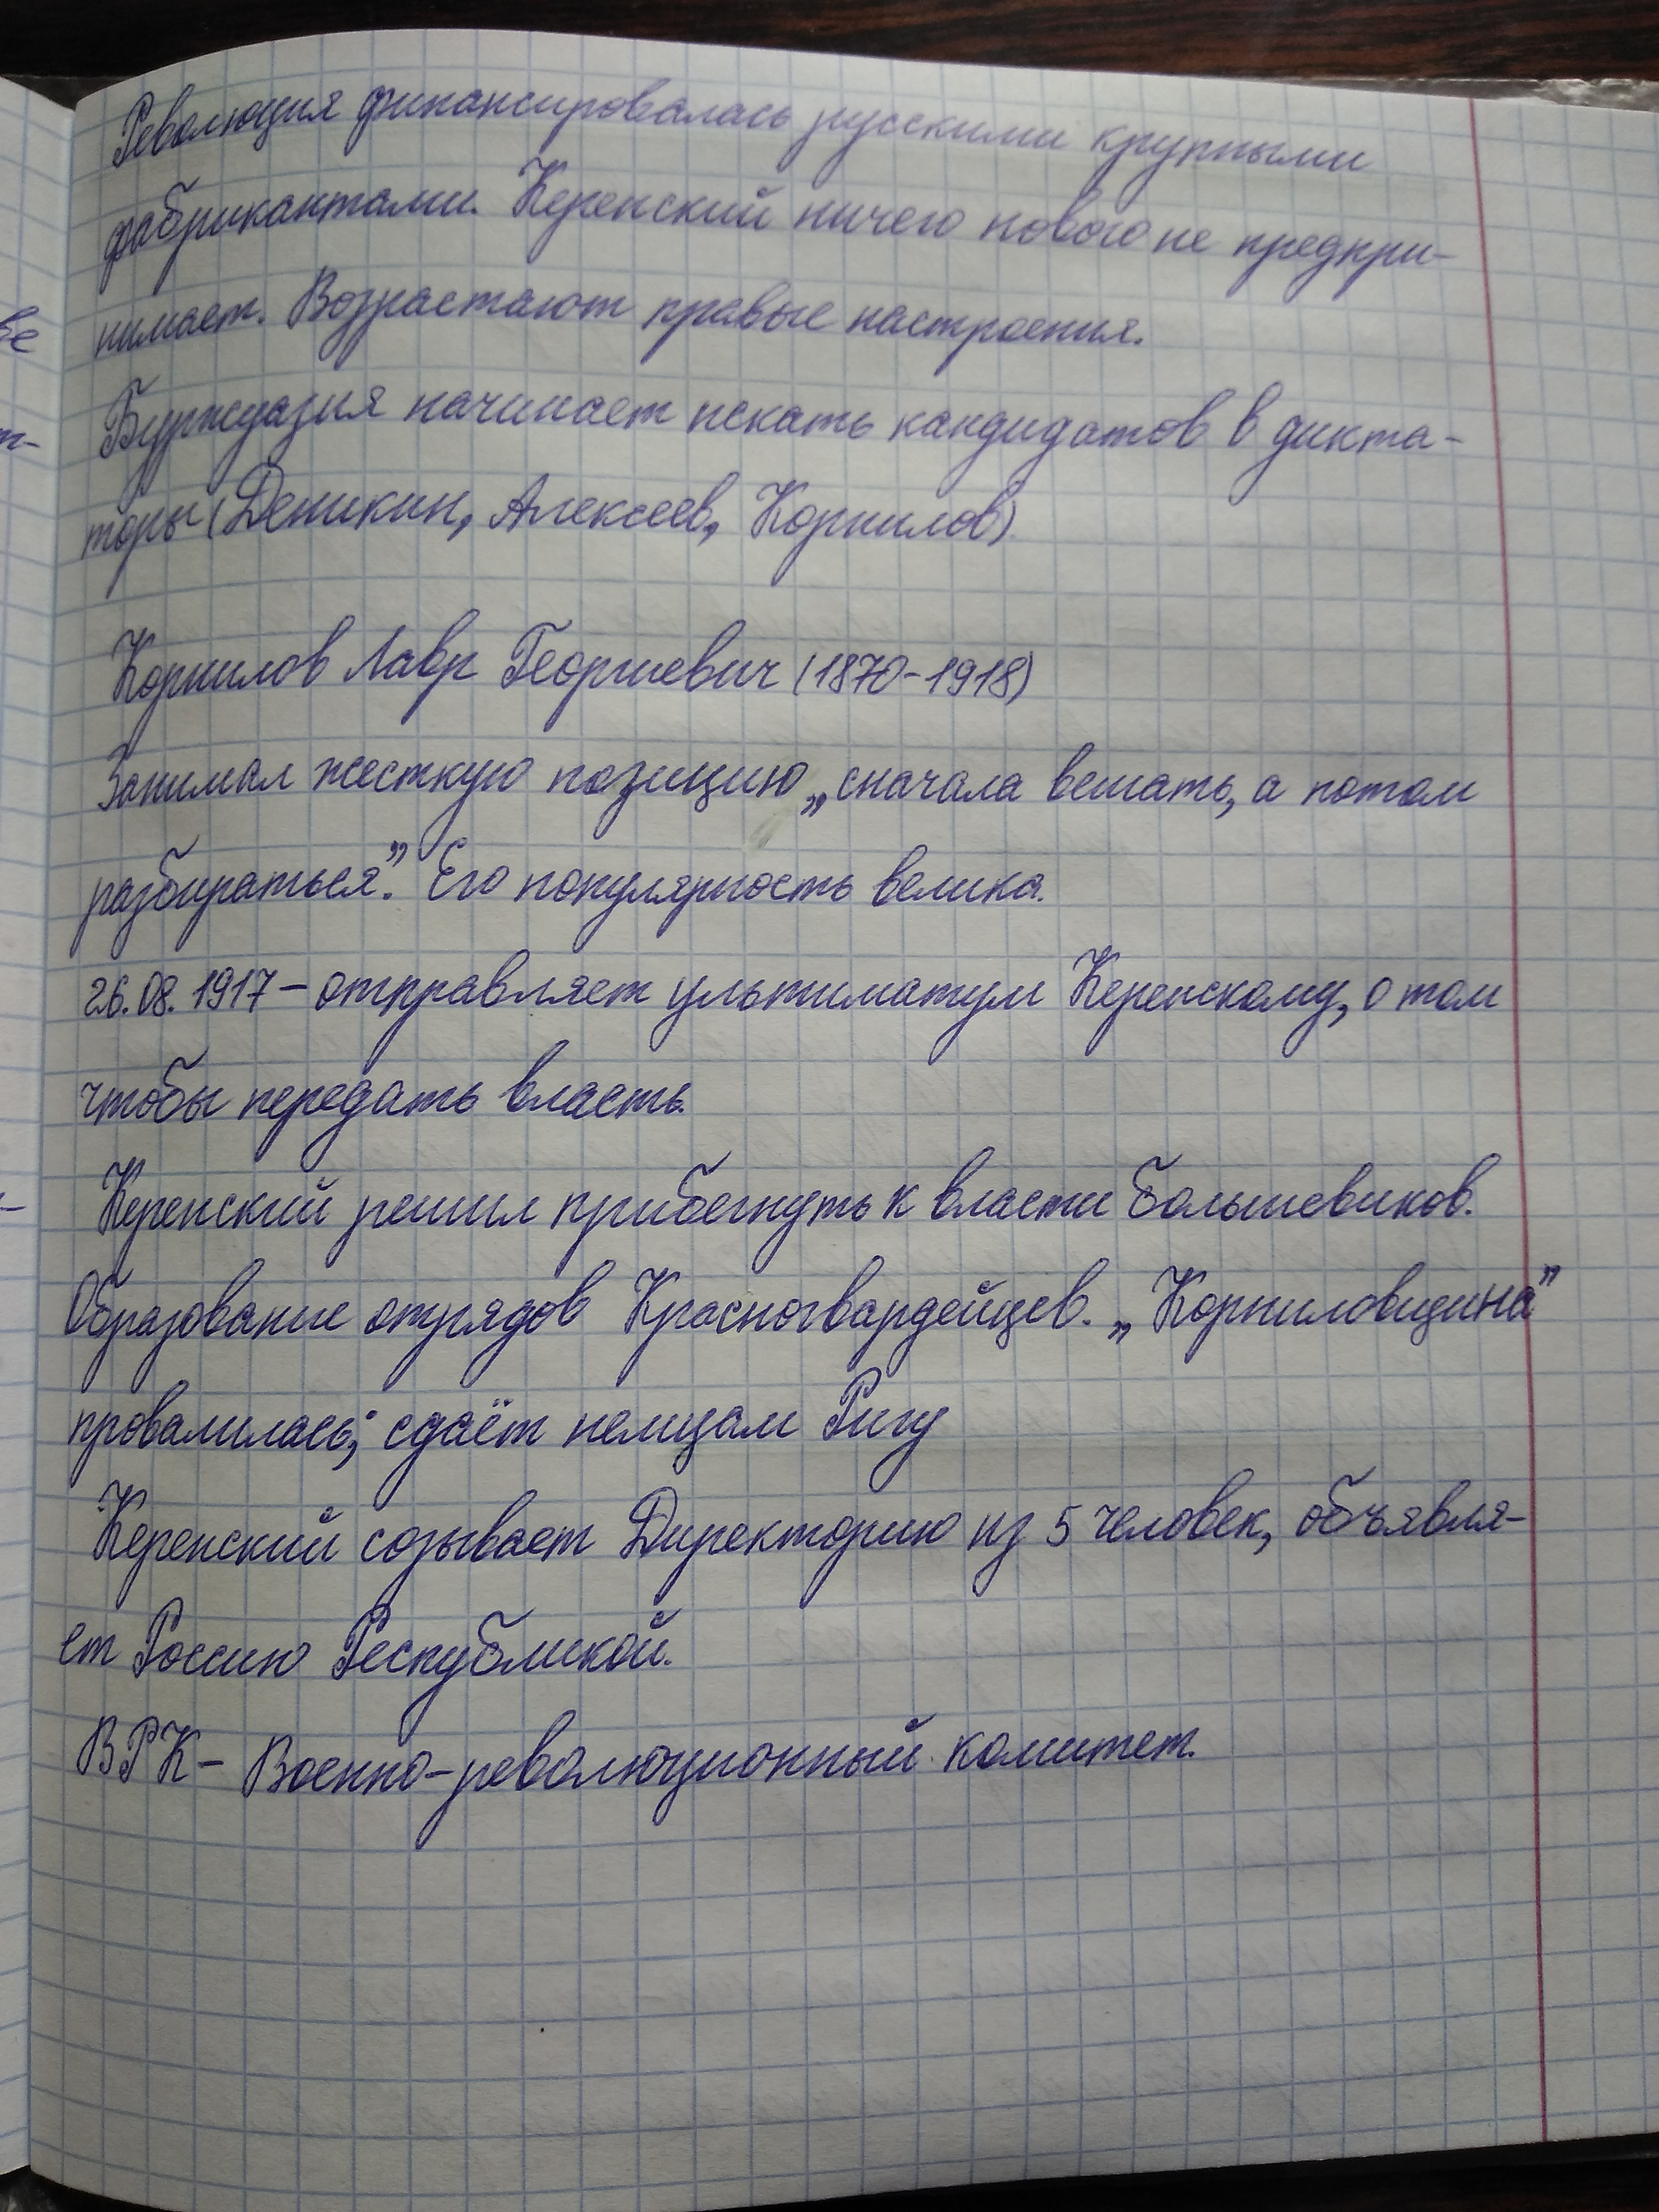 Революция финансировалась русскими крупными
фабрикантами. Керенский ничего нового не предпри-
нимает. Возрастают правые настроения.
Буржуазия начинает искать кандидатов в дикта-
торы (Деникин, Алексеев, Корнилов)
Корнилов Лавр Георгиевич (1870-1918)
Занимал жесткую позицию „сначала вешать, а потом
разбираться”. Его популярность велика.
26.08.1917 – отправляет ультиматум Керенскому, о том
чтобы передать власть.
Керенский решил прибегнуть к власти большевиков.
Образование отрядов Красногвардейцев. „Корниловщина”
провалилась; сдаёт немцам Ригу
Керенский созывает Директорию из 5 человек, объявля-
ет Россию Республикой.
ВРК – Военно-революционный комитет.